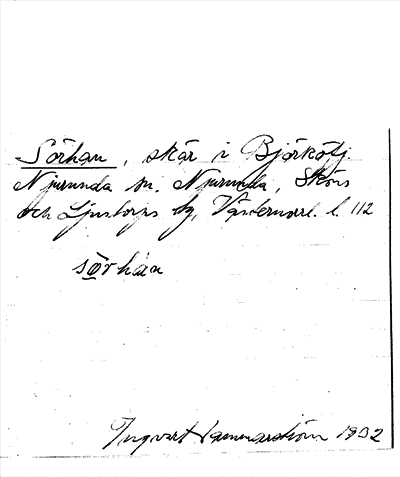 Sörhan, skär i Björköfj.
Njurunda sn. Njurunda, Sköns
och Ljustorps tg, Västernorrl. l. 112
sörhan
Ingvart Hammarström 1932